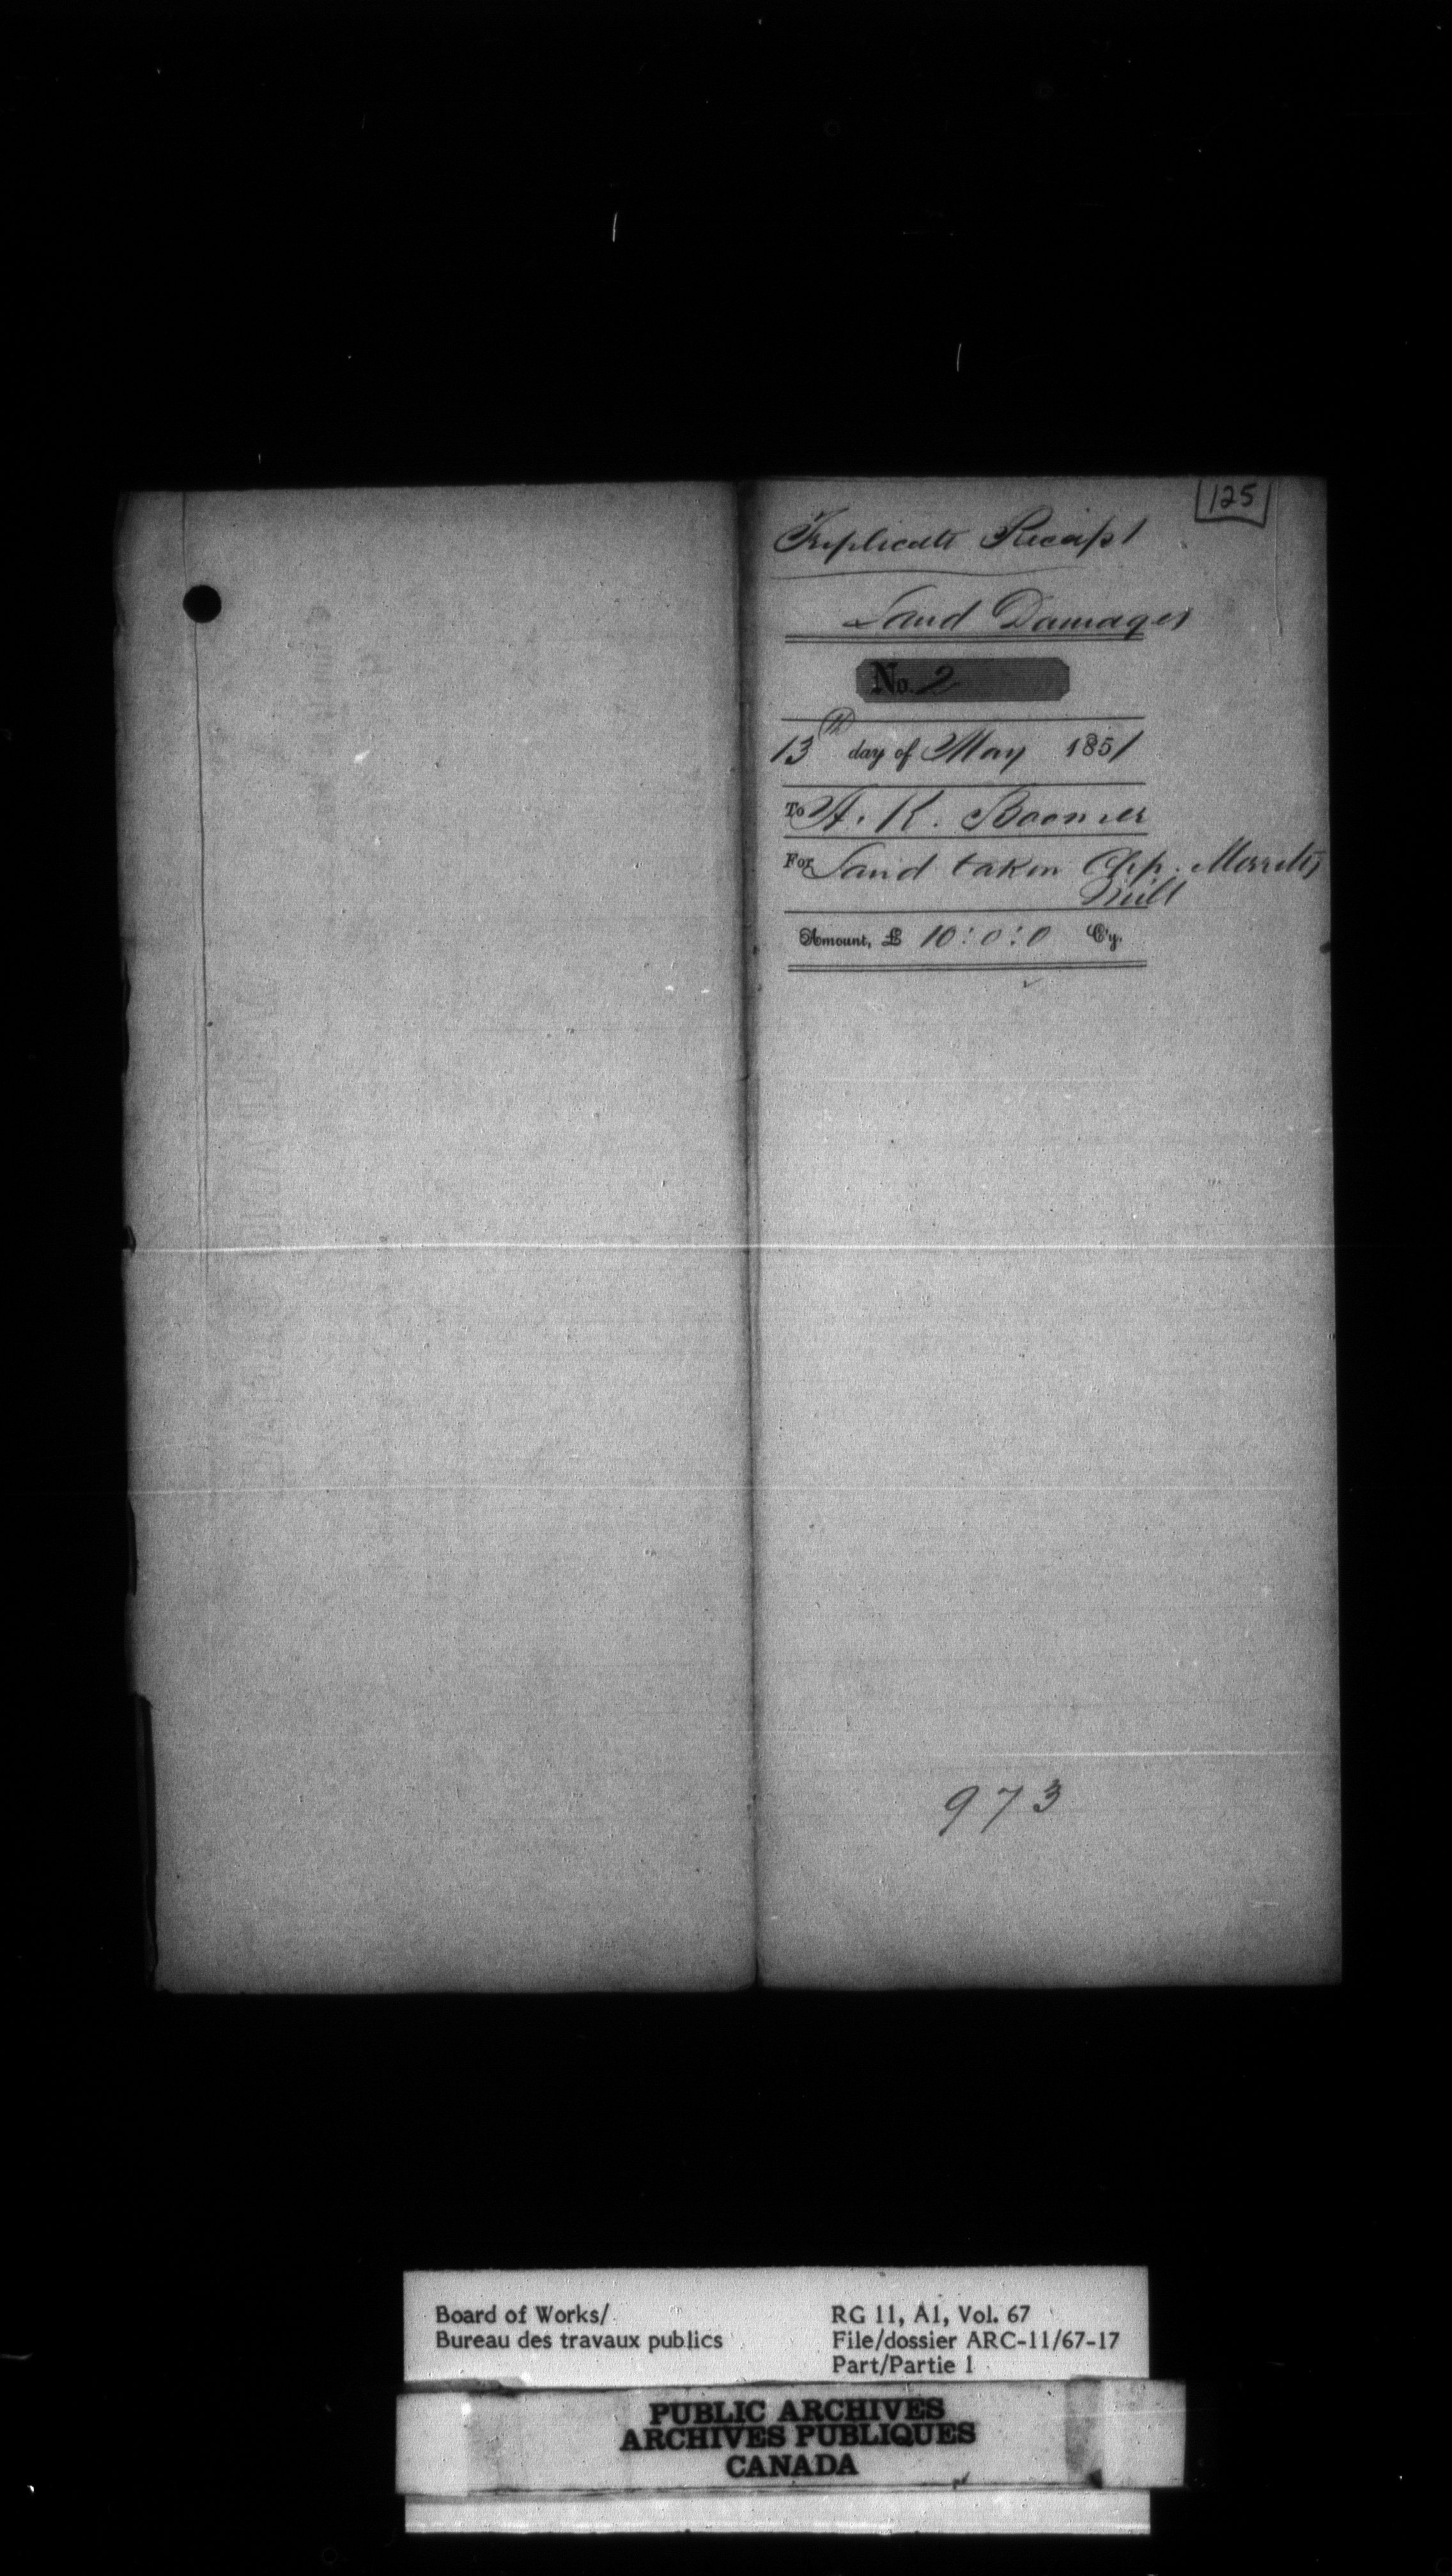 125
Triplicate Receipt
Land Damages
No. 2
13th day of May 1851
To A. K. Boomer
For Land taken Opp. Merritts
Mill
Amount, £ 10:0:0 Cy.
973
Board of Works/
Bureau des travaux publics
RG 11, A1, Vol. 67
File/dossier ARC-11/67-17
Part/Partie 1
PUBLIC ARCHIVES
ARCHIVES PUBLIQUES
CANADA